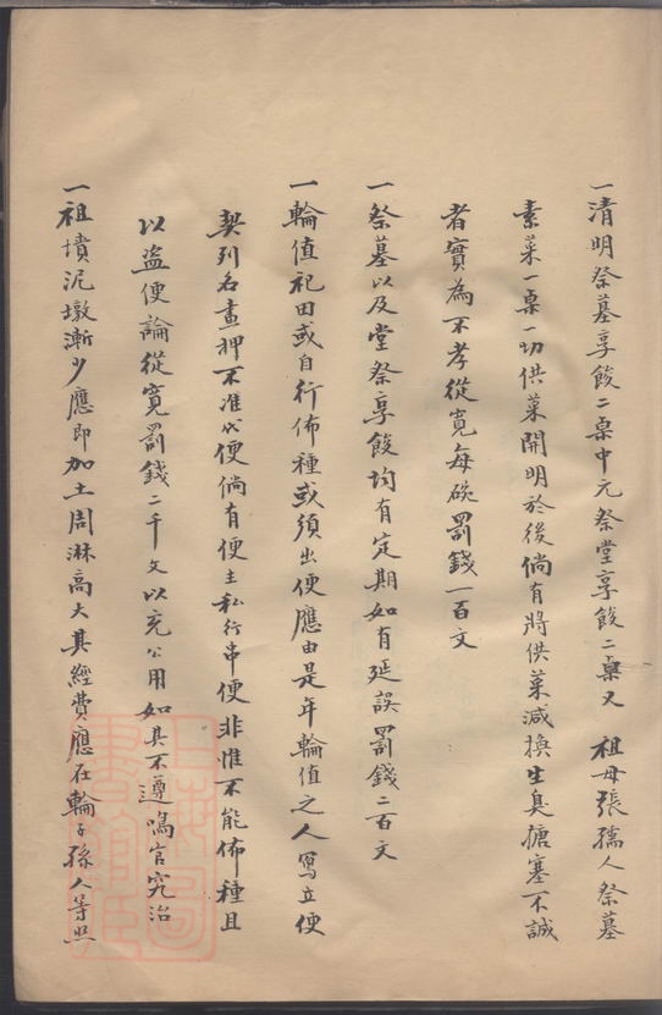 一清明祭墓享餕二桌中元祭堂享餕二桌又　祖母張孺人祭墓
素菜一桌一切供菜開明於後倘有將供菜減換生臭搪塞不誠
者實為不孝從寬每碗罰錢一百文
一祭墓以及堂祭享餕均有定期如有延誤罰錢二百文
一輪值祀田或自行佈種或須出便應由是年輪值之人寫立便
契列名畫押不准代便倘有便主私行串便非惟不能佈種且
以盜便論從寬罰錢二千文以充公用如其不遵鳴官究治
一祖墳泥墩漸少應即加土周淋高大其經費應在輪子孫人等照
上海圖書館藏